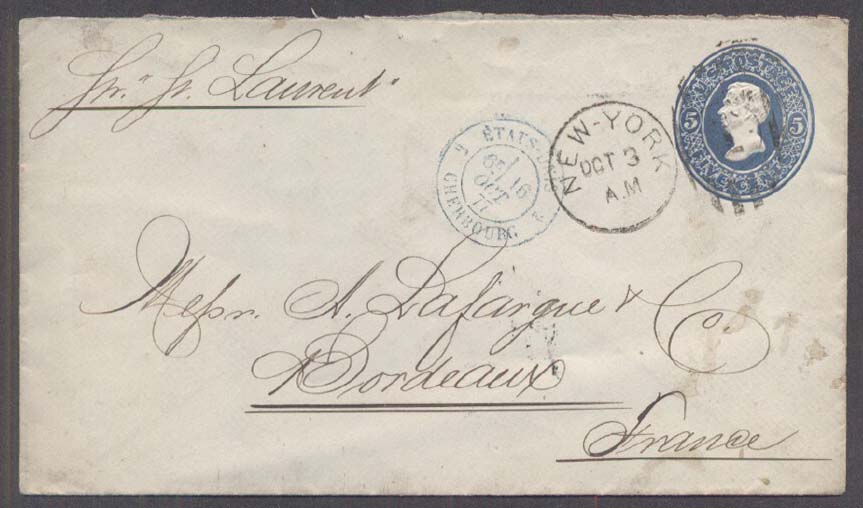 Str. St. Laurent
5 5
NEW-YORK
OCT 3
A.M
ÉTATS-UNIS
16
OCT
77
CHERBOURG
Messr. A. Lafargue & Co
Bordeaux
France